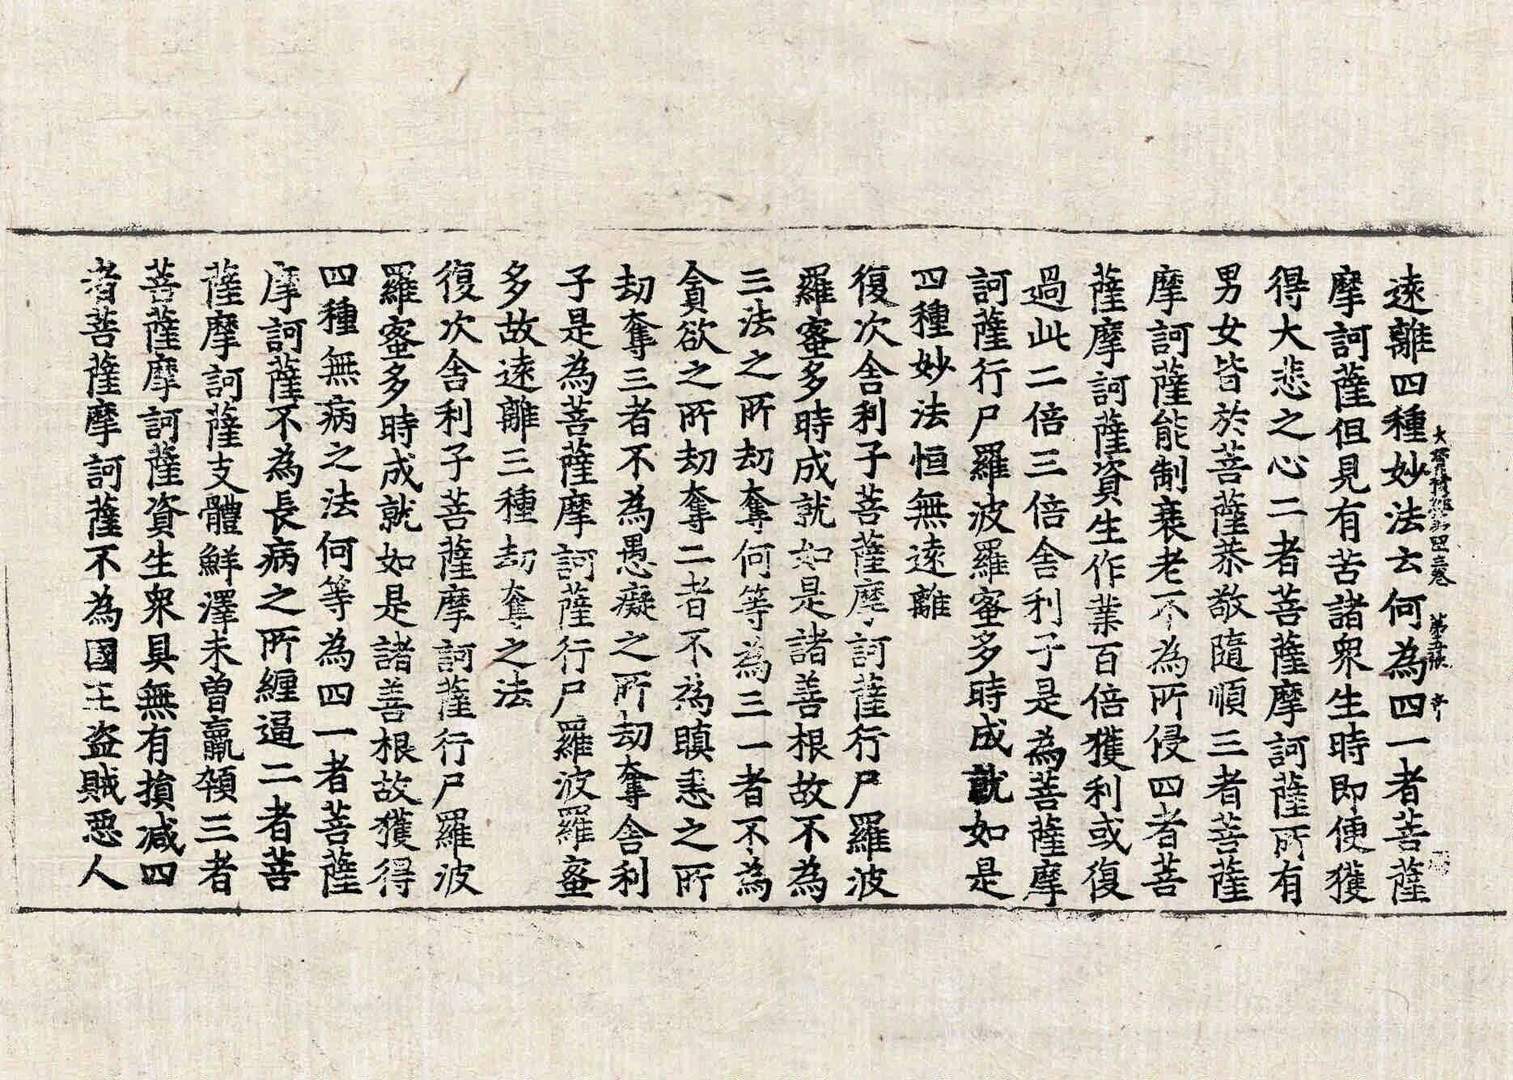 遠離四種妙法云何為四一者菩薩
大寶積經第四十三卷 第五張 帝
摩訶薩但見有苦諸眾生時即便獲
得大悲之心二者菩薩摩訶薩所有
男女皆於菩薩恭敬隨順三者菩薩
摩訶薩能制衰老不為所侵四者菩
薩摩訶薩資生作業百倍獲利或復
過此二倍三倍舍利子是為菩薩摩
訶薩行尸羅波羅蜜多時成就如是
四種妙法恒無遠離
復次舍利子菩薩摩訶薩行尸羅波
羅蜜多時成就如是諸善根故不為
三法之所劫奪何等為三一者不為
貪欲之所劫奪二者不為瞋恚之所
劫奪三者不為愚癡之所劫奪舍利
子是為菩薩摩訶薩行尸羅波羅蜜
多故遠離三種劫奪之法
復次舍利子菩薩摩訶薩行尸羅波
羅蜜多時成就如是諸善根故獲得
四種無病之法何等為四一者菩薩
摩訶薩不為長病之所纏逼二者菩
薩摩訶薩支體鮮澤未曾羸顇三者
菩薩摩訶薩資生眾具無有損減四
者菩薩摩訶薩不為國王盜賊惡人